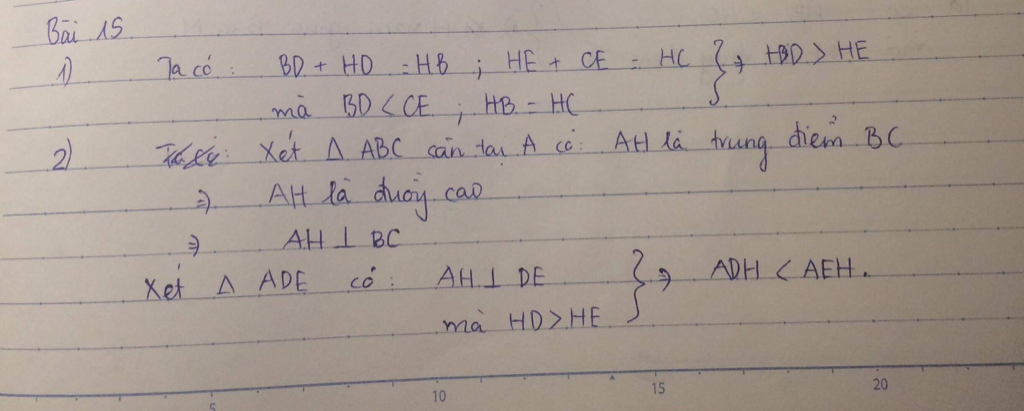 Bài 15
1) Ta có : BD + HD = HB ; HE + CE = HC } => HBD > HE
mà BD < CE ; HB = HC
2) Xét Δ ABC cân tại A có: AH là trung điểm BC
=> AH là đường cao
=> AH ⊥ BC
Xét Δ ADE có : AH ⊥ DE } => ADH < AEH.
mà HD > HE
5 10 15 20